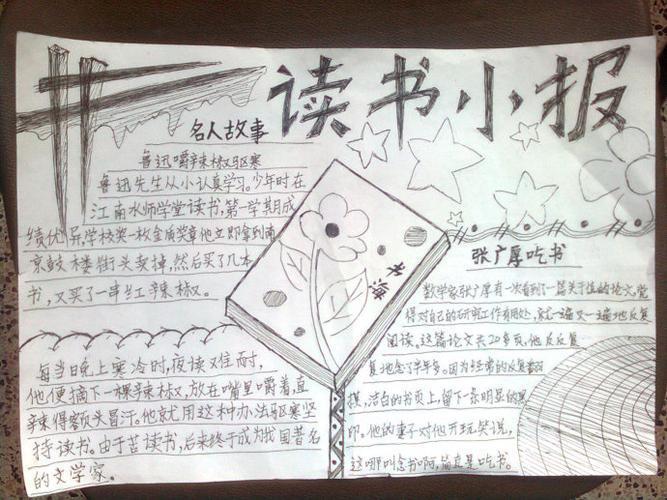 读书小报
名人故事
鲁迅嚼辣椒驱寒
鲁迅先生从小认真学习。少年时在
江南水师学堂读书,第一学期成
绩优异,学校奖一枚金质奖章他立即拿到南
京鼓楼街头卖掉,然后买了几本
书,又买了一串红辣椒。
每当晚上寒冷时,夜读难耐,
他便摘下一棵辣椒,放在嘴里嚼着,直
辣得额头冒汗。他就用这种办法驱寒坚
持读书。由于苦读书,后来终于成为我国著名
的文学家。
书海
张广厚吃书
数学家张广厚有一次看到了一篇关于值的论文,觉
得对自己的研究工作有用处,就一遍又一遍地反复
阅读。这篇论文共20多页,他反反复
复地念了半年多。因为经常的反复翻
摸,洁白的书页上,留下一条明显的黑
印。他的妻子对他开玩笑说,
这哪叫念书啊,简直是吃书。